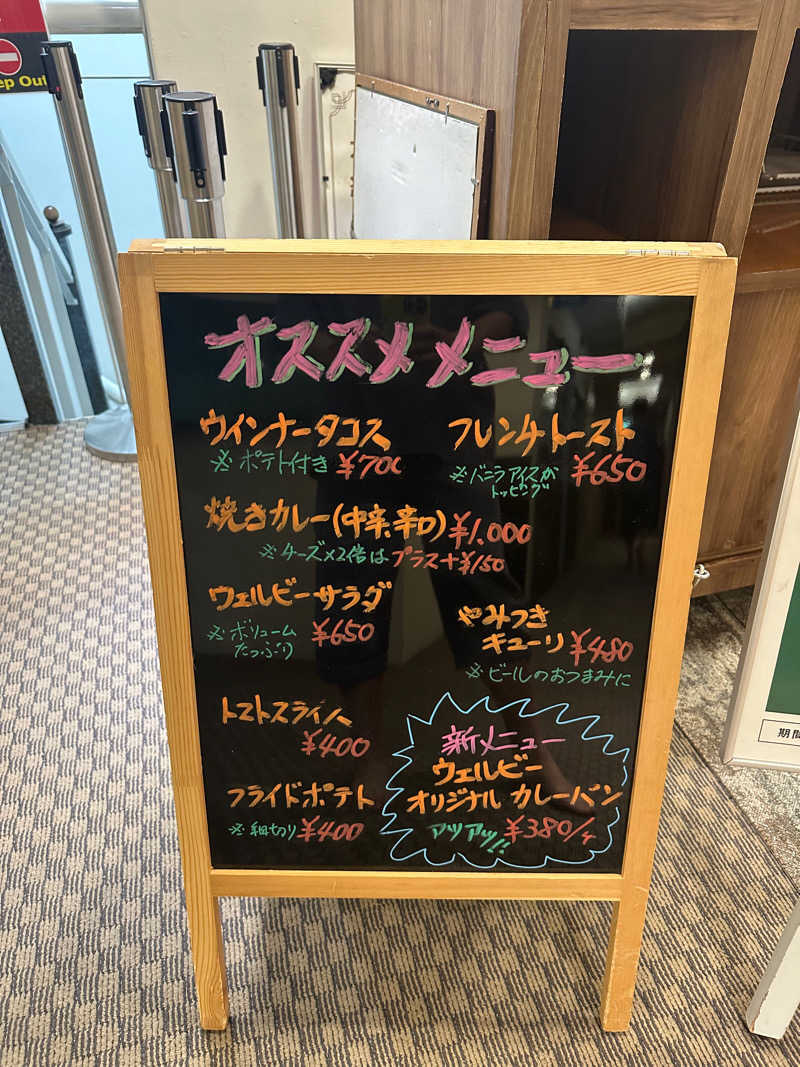 ep Out
オススメメニュー
ウインナータコス
※ポテト付き ¥700
フレンチトースト
※バニラアイスが
トッピング
¥650
焼きカレー(中辛、辛口) ¥1,000
※チーズ×2倍は プラス+¥150
ウェルビーサラダ
※ボリューム
たっぷり
¥650
やみつき
キューリ ¥480
※ビールのおつまみに
トマトスライス
¥400
フライドポテト
※細切り ¥400
新メニュー
ウェルビー
オリジナル カレーパン
アツアツ!! ¥380/ケ
期間